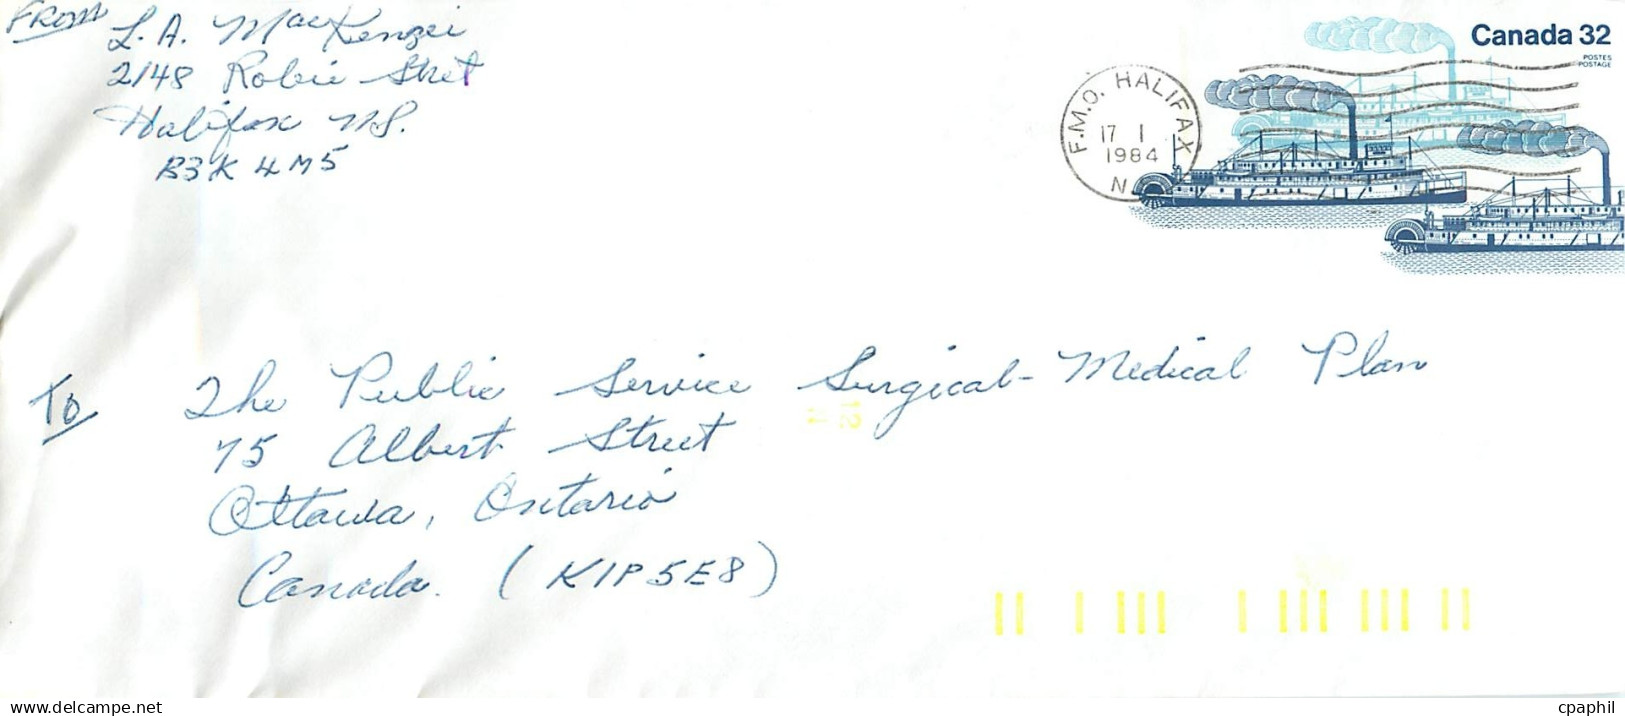 FROM L. A. MacKenzei
2148 Robie Street
Halifax N.S.
B3K 4M5
Canada 32
POSTES
POSTAGE
F.M.O. HALIFAX
17 I
1984
N
To The Public Service Surgical-Medical Plan
75 Albert Street
Ottawa, Ontario
Canada. (K1P5E8)
Delcampe.net
cpaphil